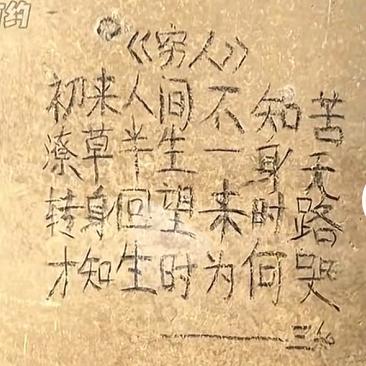 《穷人》
初来人间不知苦
潦草半生一身无
转身回望来时路
才知生时为何哭